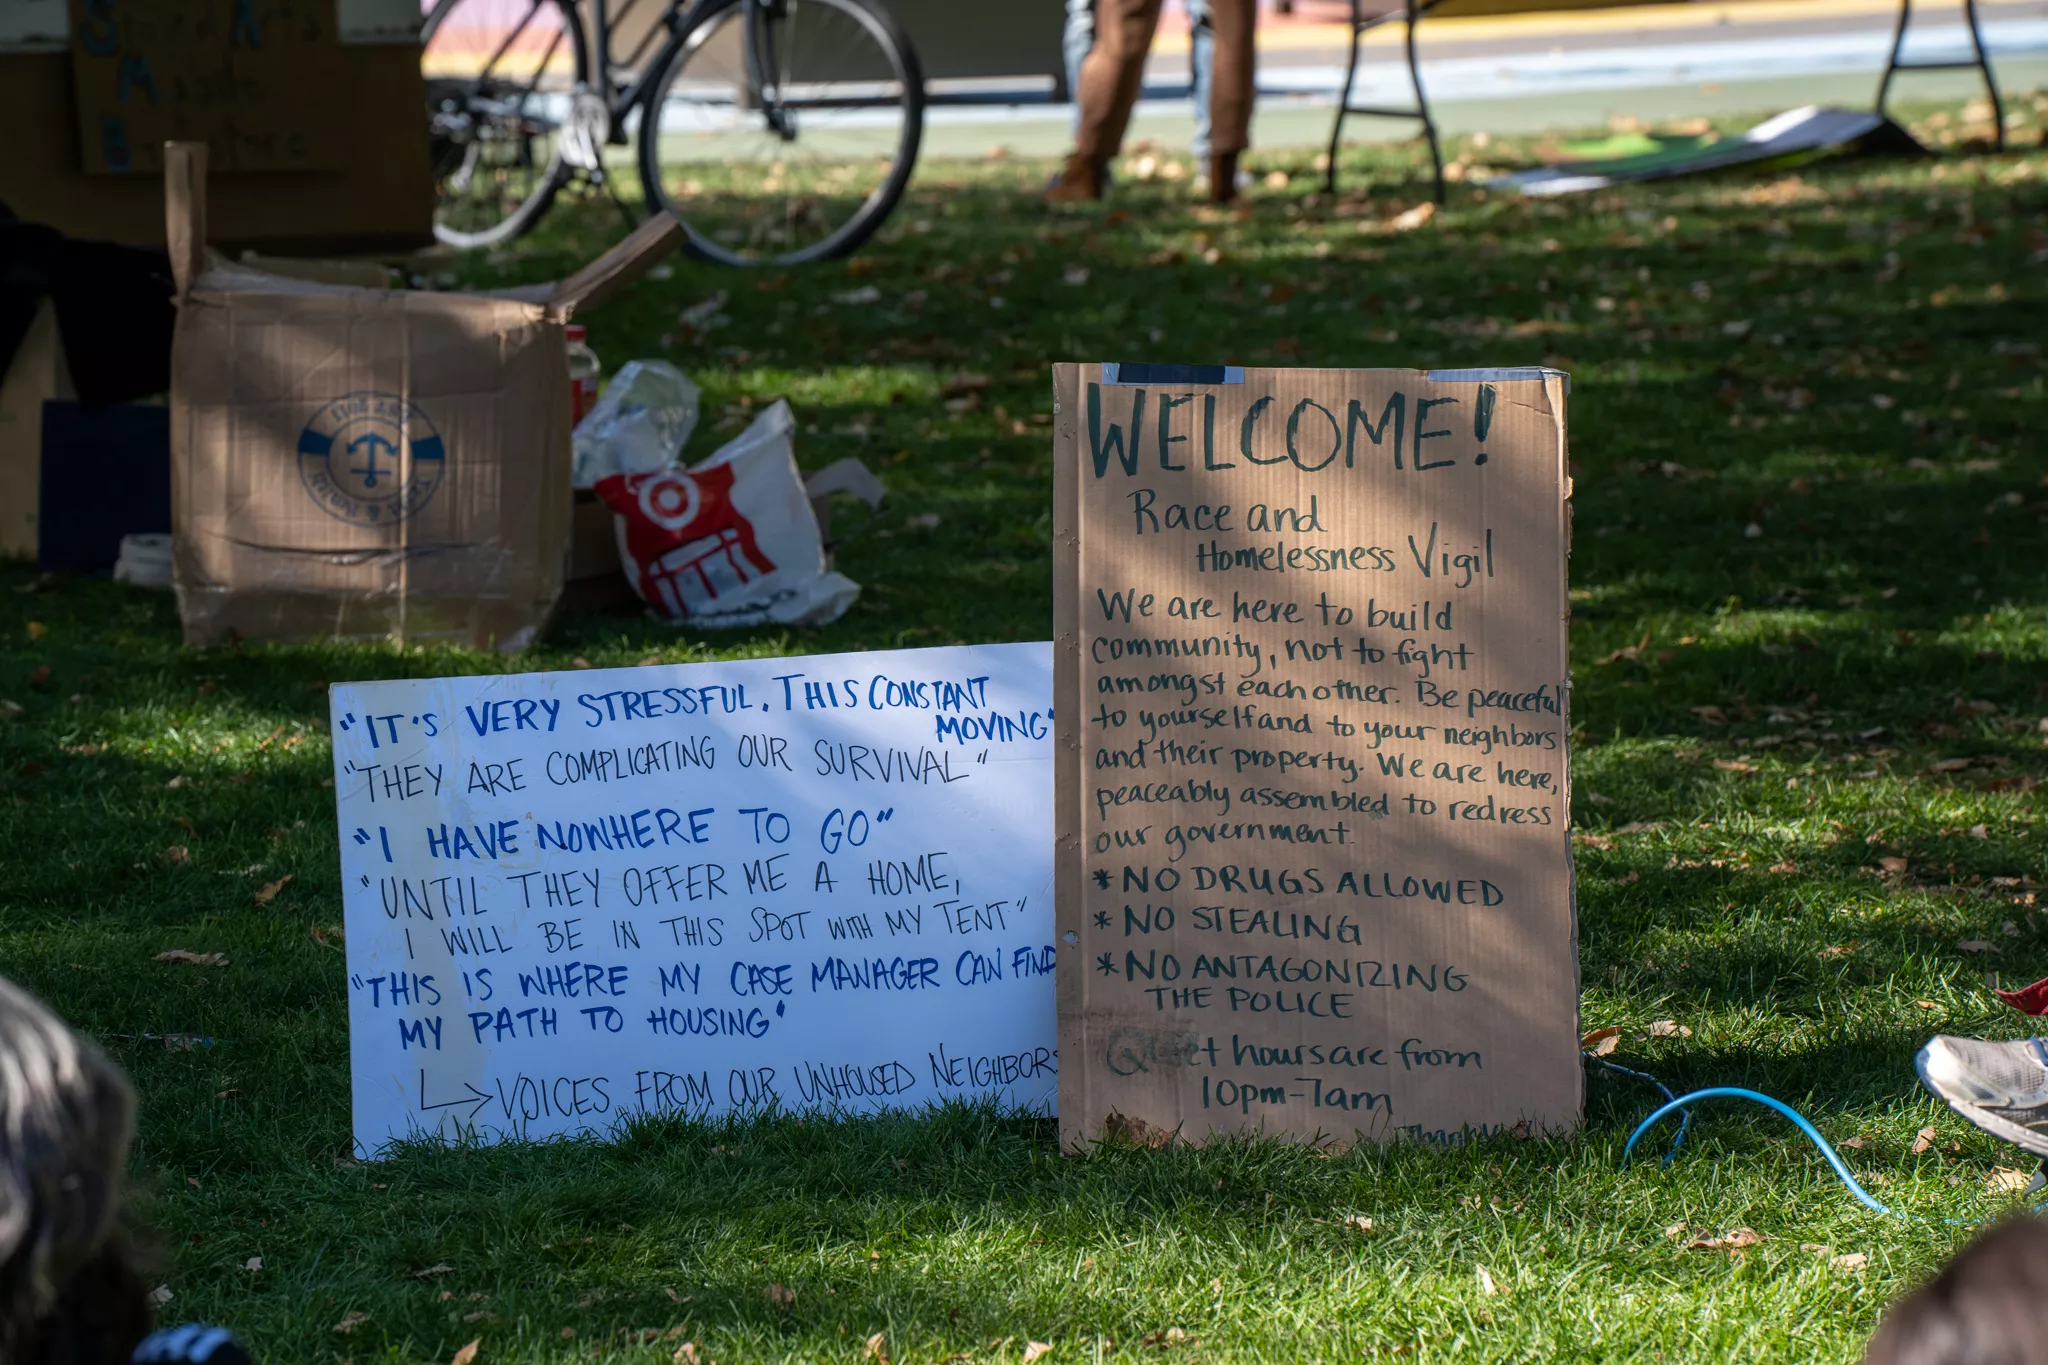 "IT'S VERY STRESSFUL. THIS CONSTANT
MOVING"
"THEY ARE COMPLICATING OUR SURVIVAL"
"I HAVE NOWHERE TO GO"
"UNTIL THEY OFFER ME A HOME,
I WILL BE IN THIS SPOT WITH MY TENT"
"THIS IS WHERE MY CASE MANAGER CAN FIND
MY PATH TO HOUSING"
VOICES FROM OUR UNHOUSED NEIGHBORS
WELCOME!
Race and
Homelessness Vigil
We are here to build
community, not to fight
amongst each other. Be peaceful
to yourself and to your neighbors
and their property. We are here,
peaceably assembled to redress
our government.
* NO DRUGS ALLOWED
* NO STEALING
* NO ANTAGONIZING
THE POLICE
Quiet hours are from
10pm-7am